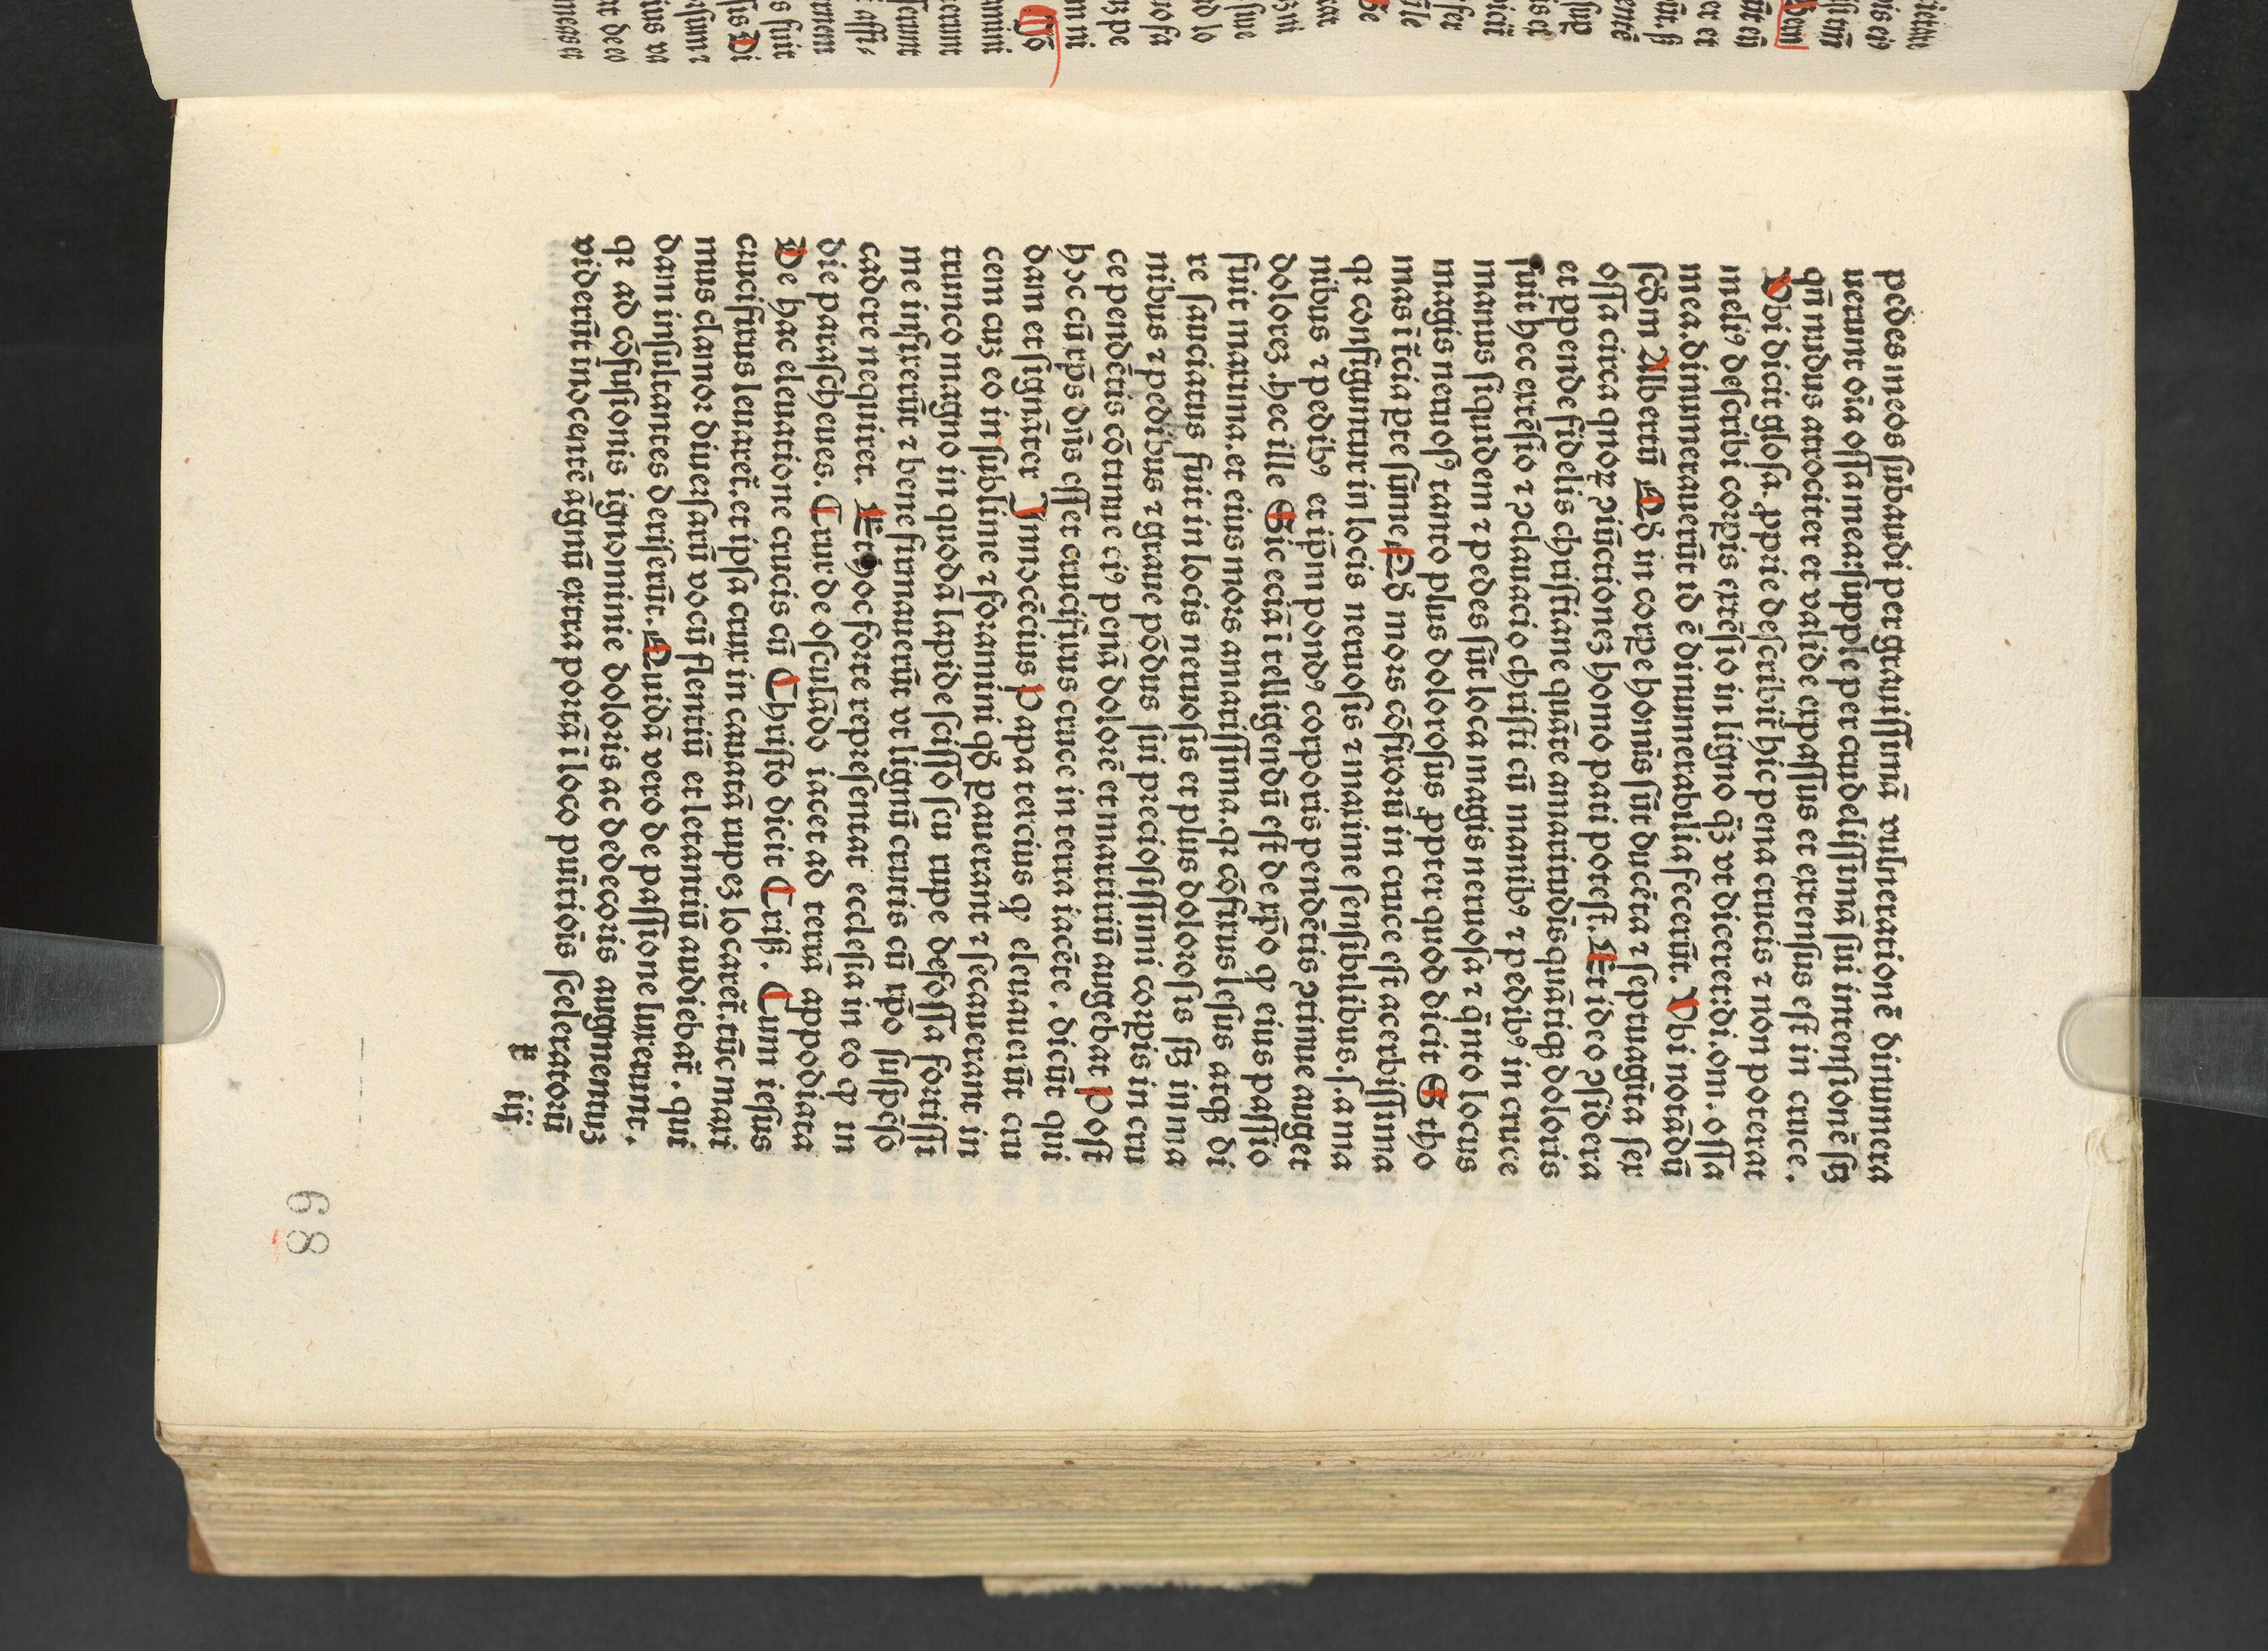 pedes meos ſubaudi per grauiſſimã vulnerationẽ dinumera
uerunt oĩa oſſa mea: ſupple per crudeliſſimã ſui intenſionẽ ſcʒ
qñ nudus atrociter et valide expaſſus et extenſus eſt in cruce.
Ubi dicit gloſa. ꝓprie deſcribit̃ hic pena crucis ⁊ non poterat
meliꝰ deſcribi corꝑis extẽſio in ligno q̃ʒ vt diceret: di. om. oſſa
mea. dinumerauerũt id ẽ dinumerabilia fecerũt. Ubi notãdũ
ſcďm Albertũ Qď in corꝑe homĩs ſũt ducẽta ⁊ ſeptuagĩta ſex
oſſa circa quoꝝ ꝯiũctioneʒ homo pati poteſt. Et ideo ꝯſidera
et ꝓpende fidelis chriſtiane quãte amaritudĩs quãtiqꝫ doloris
fuit hec extẽſio ⁊ ꝯclauacio chriſti cũ manibꝰ ⁊ pedibꝰ in cruce
manus ſiquidem ⁊ pedes ſũt loca magis neruoſa ⁊ q̃nto locus
magis neruoſꝰ tanto plus doloroſus ꝓpter quod dicit S tho
mas ĩ t̃cia ꝑte ſũme Qď mors cõfixorũ in cruce eſt acerbiſſima
qꝛ configuntur in locis neruoſis ⁊ maxime ſenſibilibus. ſ. a ma
nibus ⁊ pedibꝰ et ip̃m pondꝰ corporis pendẽtis ꝯtinue auget
doloreʒ. hec ille Sic eciã ĩtelligendũ eſt de xp̃o ꝙ eius paſſio
fuit maxima. et eius mors amariſſima. qꝛ cõfixus leſus atqꝫ di
re ſauciatus fuit in locis neruoſis et plus doloroſis ſcʒ in ma
nibus ⁊ pedibus ⁊ graue põdus ſui precioſiſſimi corꝑis in cru
ce pendẽtis cõtinue eiꝰ penã dolorẽ et martiriũ augebat Poſt
hoc cũ xp̃s dñs eſſet crucifixus cruce in terra iacẽte. dicũt qui
dam et ſignãter Innocẽcius Papa tercius ꝙ eleuauerũt cru
cem cuʒ eo in ſublime ⁊ foramini qď ꝑauerant ⁊ ſecauerant in
trunco magno in quodã lapide ſciſſo ſeu rupe defoſſa fortiſſi
me infixerũt ⁊ bene firmauerũt vt lignũ crucis cũ xp̃o ſuſpẽſo
cadere nequiret. Et hoc forte repreſentat eccleſia in eo ꝙ in
die paraſcheues. Crux de oſculãdo iacet ad terrã appodiata
De hac eleuatione crucis cũ Chriſto dicit Criß. Cum ieſus
crucifixus leuaret̃. et ipſa crux in cauatã rupeʒ locaret̃. tũc maxi
mus clamor diuerſarũ vocũ flentiũ et letantiũ audiebat̃. qui
dam inſultantes deriſerũt. Quidã vero de paſſione luxerunt.
qꝛ ad cõfuſionis ignominie doloris ac dedecoris augmentuʒ
viderũt inocentẽ agnũ extra portã ĩ loco pũitiõis ſceleratorũ
g iij
89